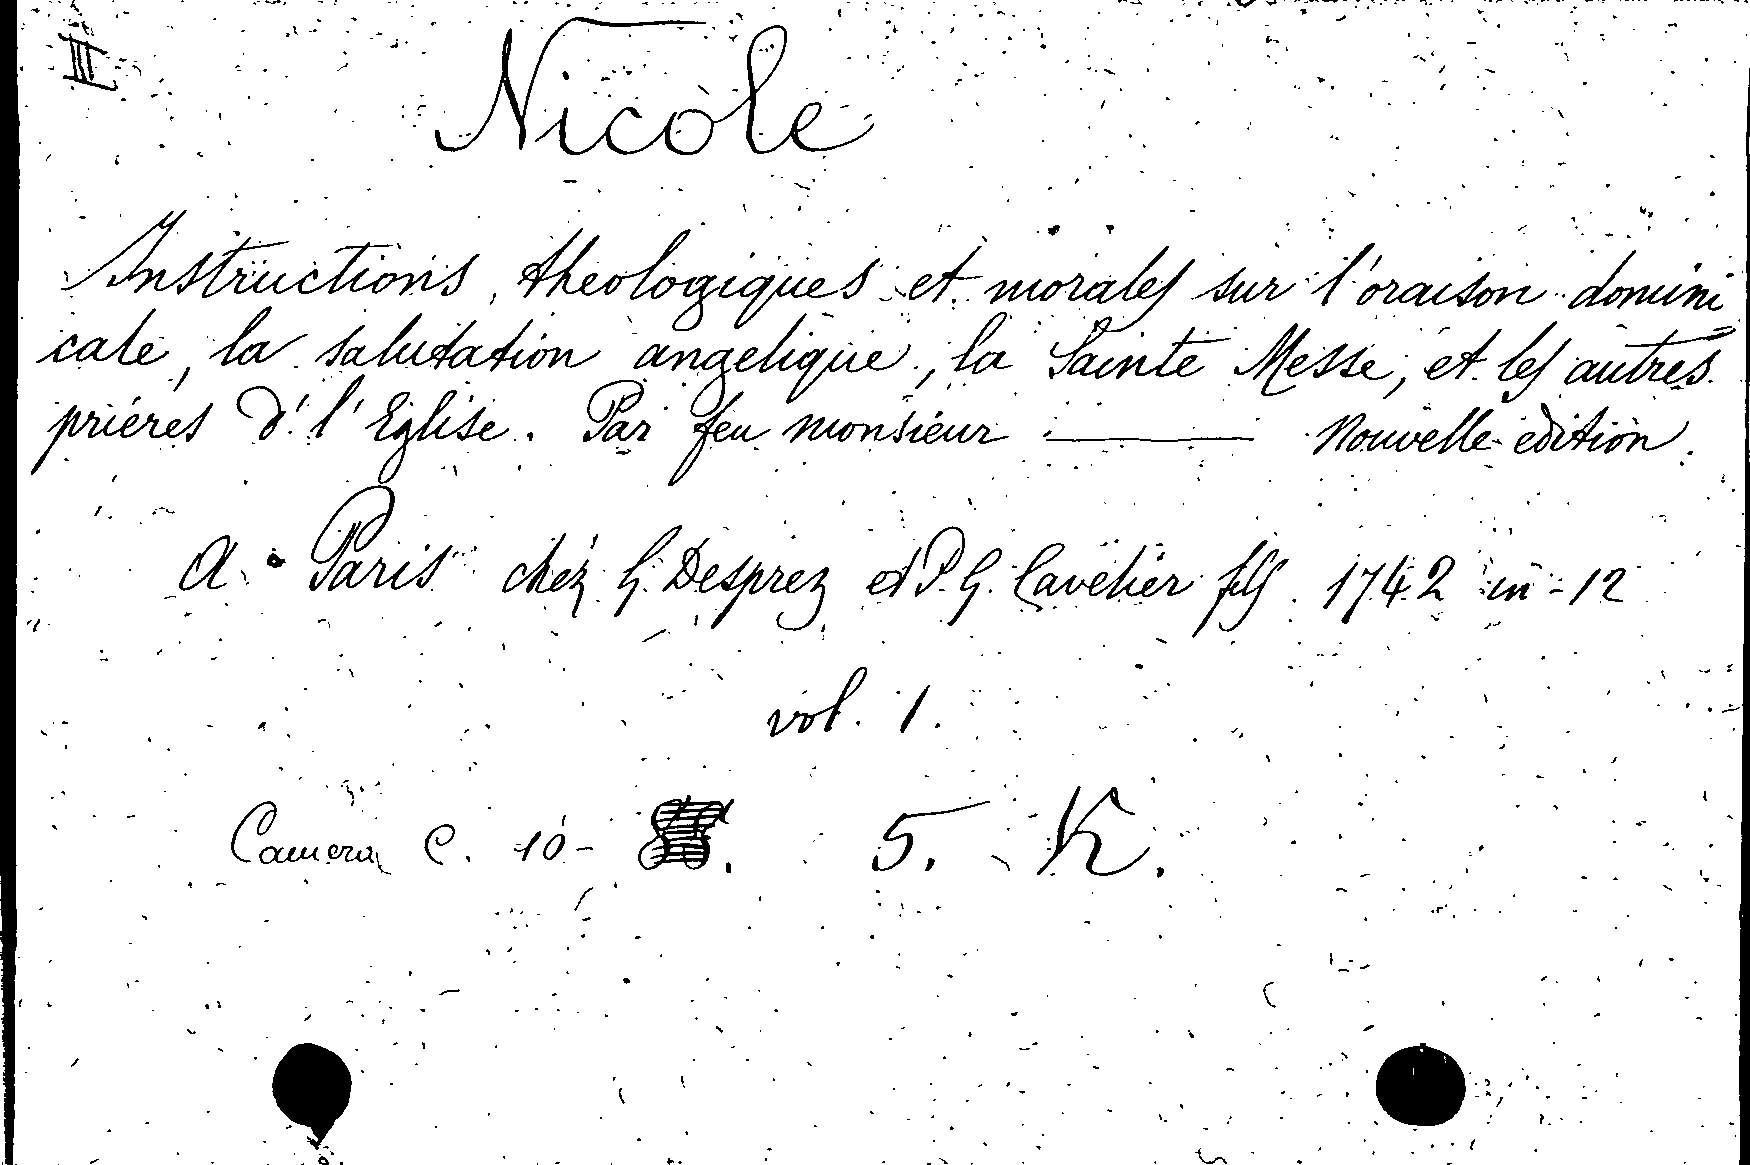 III
Nicole
Instructions theologiques et morales sur l'oraison domini
cale, la salutation angelique, la Sainte Messe, et les autres
priéres d'l'Eglise. Par feu monsieur ——— Nouvelle edition.
A Paris chéz G. Desprez et P. G. Cavelier fils. 1742 in-12
vol. 1.
Camera C. 10- 5. K.